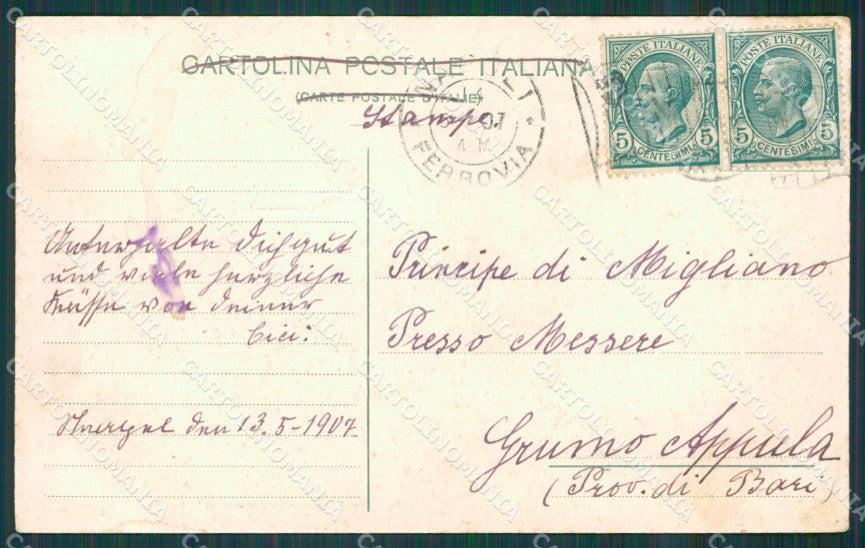 CARTOLINA POSTALE ITALIANA
(CARTE POSTALE D'ITALIE)
Stampe.
FERROVIA
POSTE ITALIANE
5 CENTESIMI 5
POSTE ITALIANE
5 CENTESIMI 5
Unterhalte dich gut
und viele herzliche
Küsse von deiner
Cici:
den 13.5-1907
Principe di Migliano
Presso Messere
Grumo Appula
(Prov. di Bari)
CARTOLINOMANIA